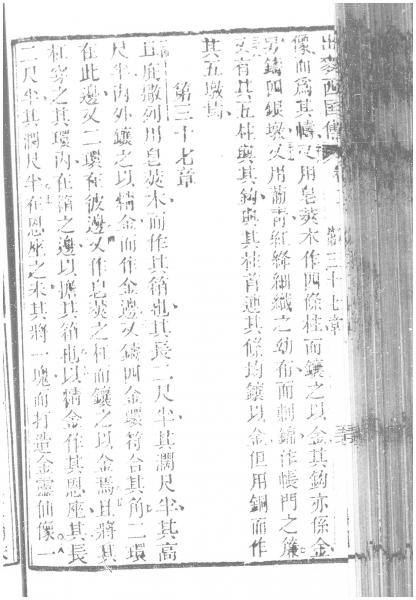 出麥西國傳 第三十七章
像而爲其幬又用皂莢木作四條柱而鑲之以金其鈎亦係金
另鑄四銀墩又用葡青紅絳細織之幼布而刺繡作帳門之簾
又有其五柱與其鈎與其柱首連其條均鑲以金但用銅而作
其五墩焉
第三十七章
且庇撒列用皂莢木而作其箱也其長二尺半其濶尺半其高
尺半內外鑲之以精金而作金邊又鑄四金環符合其角二環
在此邊又二環在彼邊又作皂莢之杠而鑲之以金焉且將其
杠穿之其環內在箱之邊以擔其箱也以精金作其恩座其長
二尺半其濶尺半在恩座之末其將一塊而打造金靈仙像一